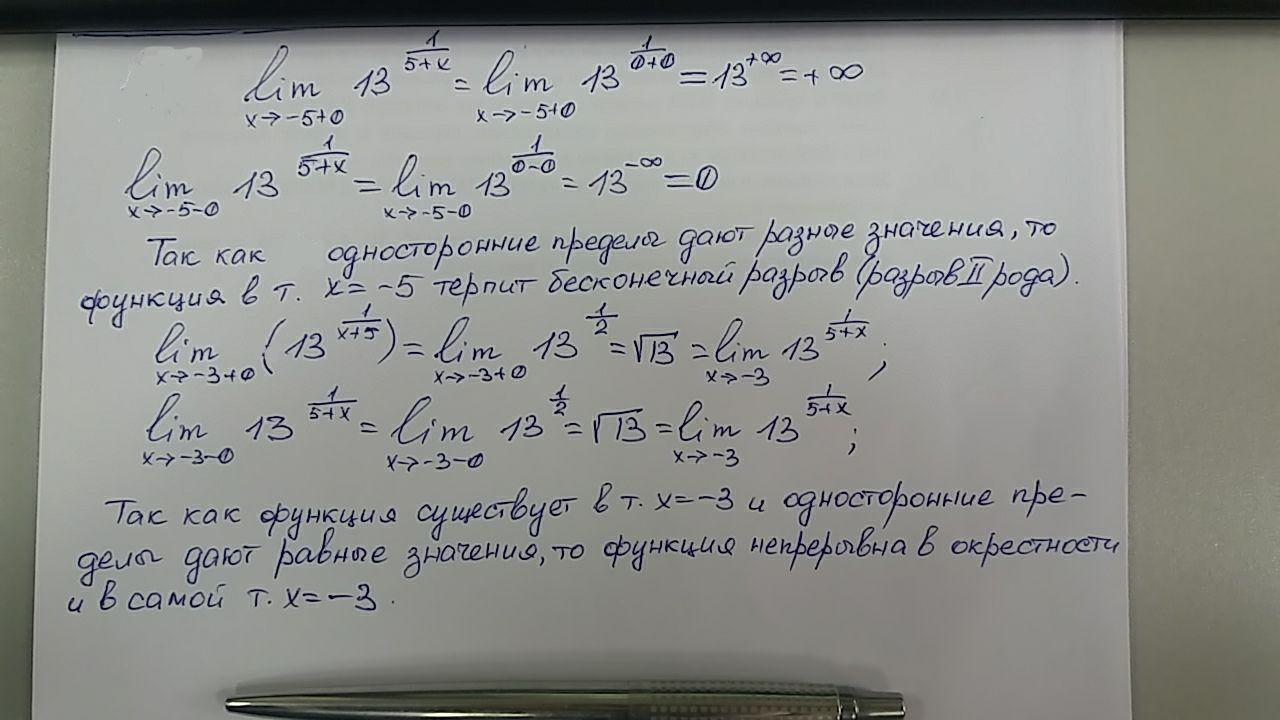 lim x→-5+0 13^(1/(5+x)) = lim x→-5+0 13^(1/(0+0)) = 13^(+∞) = +∞
lim x→-5-0 13^(1/(5+x)) = lim x→-5-0 13^(1/(0-0)) = 13^(-∞) = 0
Так как односторонние пределы дают разные значения, то
функция в т. x = -5 терпит бесконечный разрыв (разрыв II рода).
lim x→-3+0 (13^(1/(x+5))) = lim x→-3+0 13^(1/2) = √13 = lim x→-3 13^(1/(5+x)) ;
lim x→-3-0 13^(1/(5+x)) = lim x→-3-0 13^(1/2) = √13 = lim x→-3 13^(1/(5+x)) ;
Так как функция существует в т. x = -3 и односторонние пре-
делы дают равные значения, то функция непрерывна в окрестности
и в самой т. x = -3 .